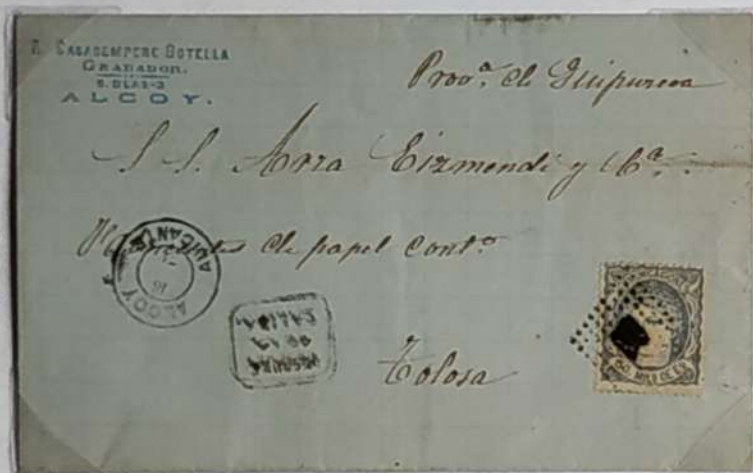 CASASEMPERE BOTELLA
GRABADOR.
S. BLAS-3
ALCOY.
Prov.ª de Guipuzcoa
S. S. Arza Eizmendi y Cª.
de papel cont.º
Tolosa
ALCOY
ALICANTE
DESPUES
DE LA
SALIDA.
50 MILS DE E.